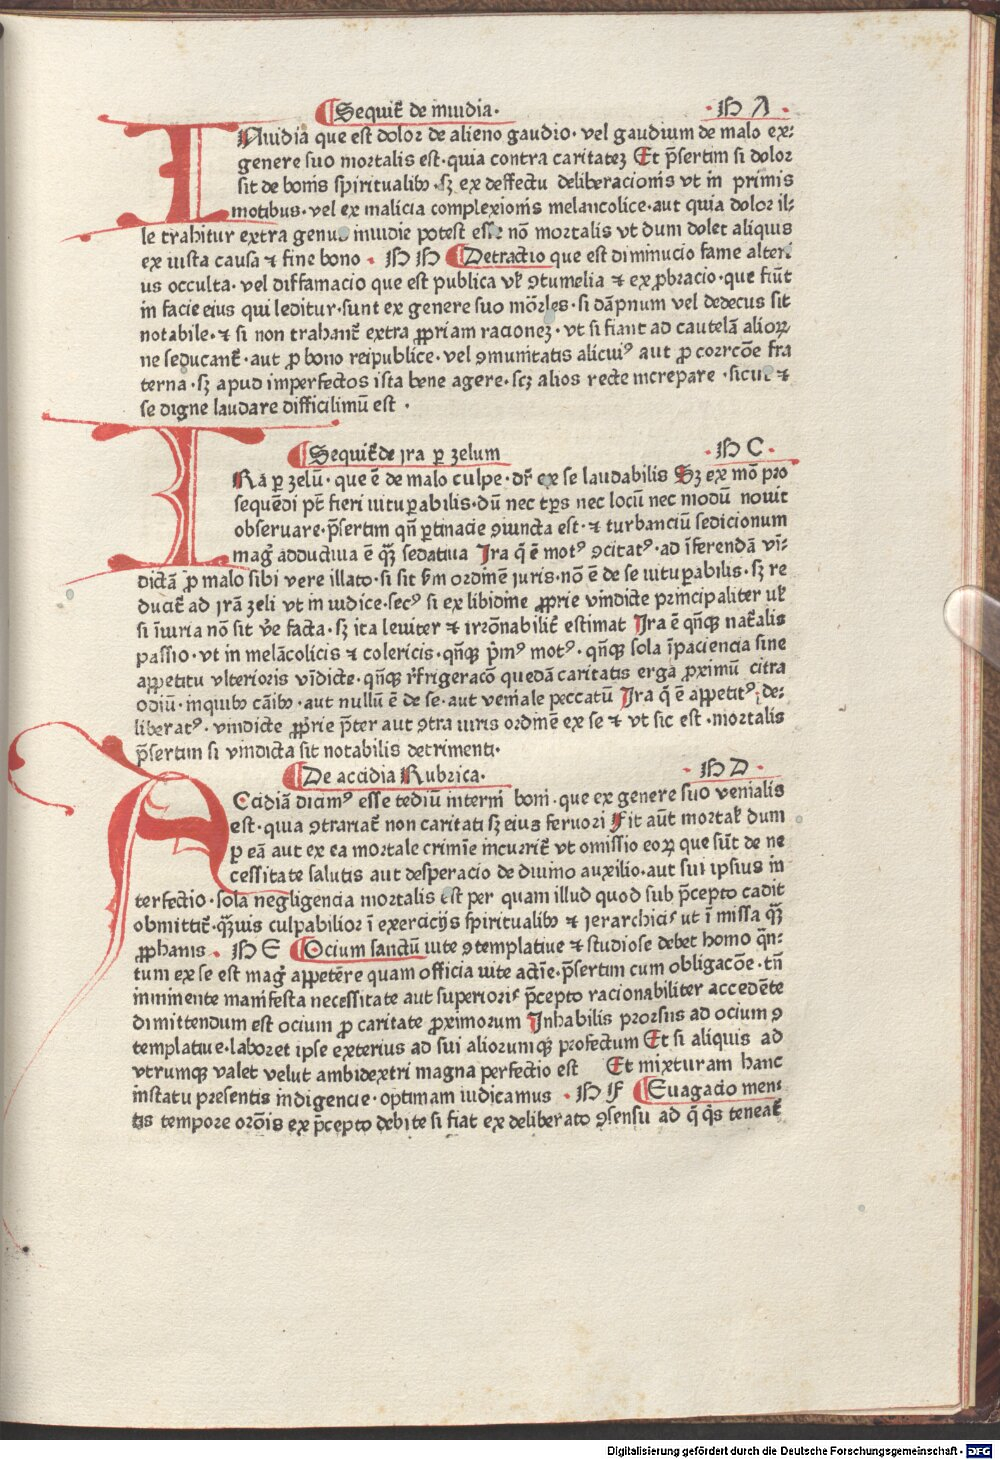 Sequit̄ de inuidia· ·H A·
INuidia que est dolor de alieno gaudio· vel gaudium de malo ex:
genere suo mortalis est·quia contra caritatez Et p̄sertim si dolor
sit de bonis spiritualibꝫ·sꝫ ex deffectu deliberacionis vt in primis
motibus·vel ex malicia complexionis melancolice·aut quia dolor il-
le trahitur extra genus inuidie potest esse nō mortalis vt dum dolet aliquis
ex iusta causa ⁊ fine bono · H H Detractio que est diminucio fame alteri
us occulta· vel diffamacio que est publica vł ꝯtumelia ⁊ exꝓbracio·que fiūt
in facie eius qui leditur·sunt ex genere suo mōrles·si dāpnum vel dedecus sit
notabile·⁊ si non trahant̄ extra ꝓpriam racionez·vt si fiant ad cautelā alioꝝ
ne seducant̄·aut ꝓ bono reipublice·vel ꝯmunitatis alicuiꝰ aut ꝓ corrcōe fra
terna·sꝫ apud imperfectos ista bene agere·scꝫ alios recte increpare ·sicut ⁊
se digne laudare difficilimū est ·
Sequit̄ de jra ꝑ zelum ·H C·
IRa ꝑ zelū·que ē de malo culpe·dr̄ ex se laudabilis Sꝫ ex mō pro
sequēdi pt̄ fieri uituꝑabilis·dū nec tꝑs nec locū nec modū nouit
obseruare·p̄sertim qn̄ ꝑtinacie ꝯiuncta est·⁊ turbanciū sedicionum
mag̉ adductiua ē q̄ꝫ sedatiua Jra q̄ ē motꝰ ꝯcitatꝰ·ad īferendā vī-
dictā ꝓ malo sibi vere illato·si sit ẜm ordinē iuris·nō ē de se uituꝑabilis·sꝫ re
ducit̄ ad jrā zeli vt in iudice·secꝰ si ex libidine ꝓprie vindicte principaliter vł
si īiuria nō sit v̄e facta·sꝫ ita leuiter ⁊ irrōnabilit̄ estimat Jra ē qn̄qꝫ nat̄alis
passio·vt in melācolicis ⁊ colericis·qn̄qꝫ p̄mꝰ motꝰ·qn̄qꝫ sola īpaciencia sine
appetitu vlterioris vīdicte·qn̄qꝫ rfrigeracō quedā caritatis erga ꝓximū citra
odiū·in quibꝫ cāibꝫ·aut nullū ē de se·aut veniale peccatū Jra q̄ ē appetitꝰ de-
liberatꝰ·vindicte ꝓprie p̄ter aut ꝯtra iuris ordinē ex se ⁊ vt sic est·mortalis
p̄sertim si vindicta sit notabilis detrimenti·
De accidia Rubrica· ·H D·
ACcidiā dicimꝰ esse tediū interni boni·que ex genere suo venialis
est·quia ꝯtrariat̄ non caritati sꝫ eius feruori Fit aūt mortał dum
ꝑ eā aut ex ea mortale crimīe incurrit̄ vt omissio eoꝝ que sūt de ne
cessitate salutis aut desperacio de diuino auxilio·aut sui ipsius in
terfectio·sola negligencia mortalis est per quam illud quod sub p̄cepto cadit
obmittit̄·q̄ꝫuis culpabilior ī exercicijs spiritualibꝫ ⁊ jerarchicis ut ī missa q̄ꝫ
ꝓphanis · H E Ocium sanctū uite ꝯtemplatiue ⁊ studiose debet homo q̄n-
tum ex se est mag̉ appetere quam officia uite actīe·p̄sertim cum obligacōe·tn̄
imminente manifesta necessitate aut superioris p̄cepto racionabiliter accedēte
dimittendum est ocium ꝓ caritate ꝓximorum Inhabilis prorsus ad ocium ꝯ
templatiue·laboret ipse exterius ad sui aliorumqꝫ profectum Et si aliquis ad
vtrumqꝫ valet velut ambidextri magna perfectio est Et mixturam hanc
in statu presentis indigencie·optimam iudicamus · H F Euagacio men:
tis tempore orōis ex p̄cepto debite si fiat ex deliberato ꝯsensu ad q̄ q̄s teneat̄
Digitalisierung gefördert durch die Deutsche Forschungsgemeinschaft - DFG